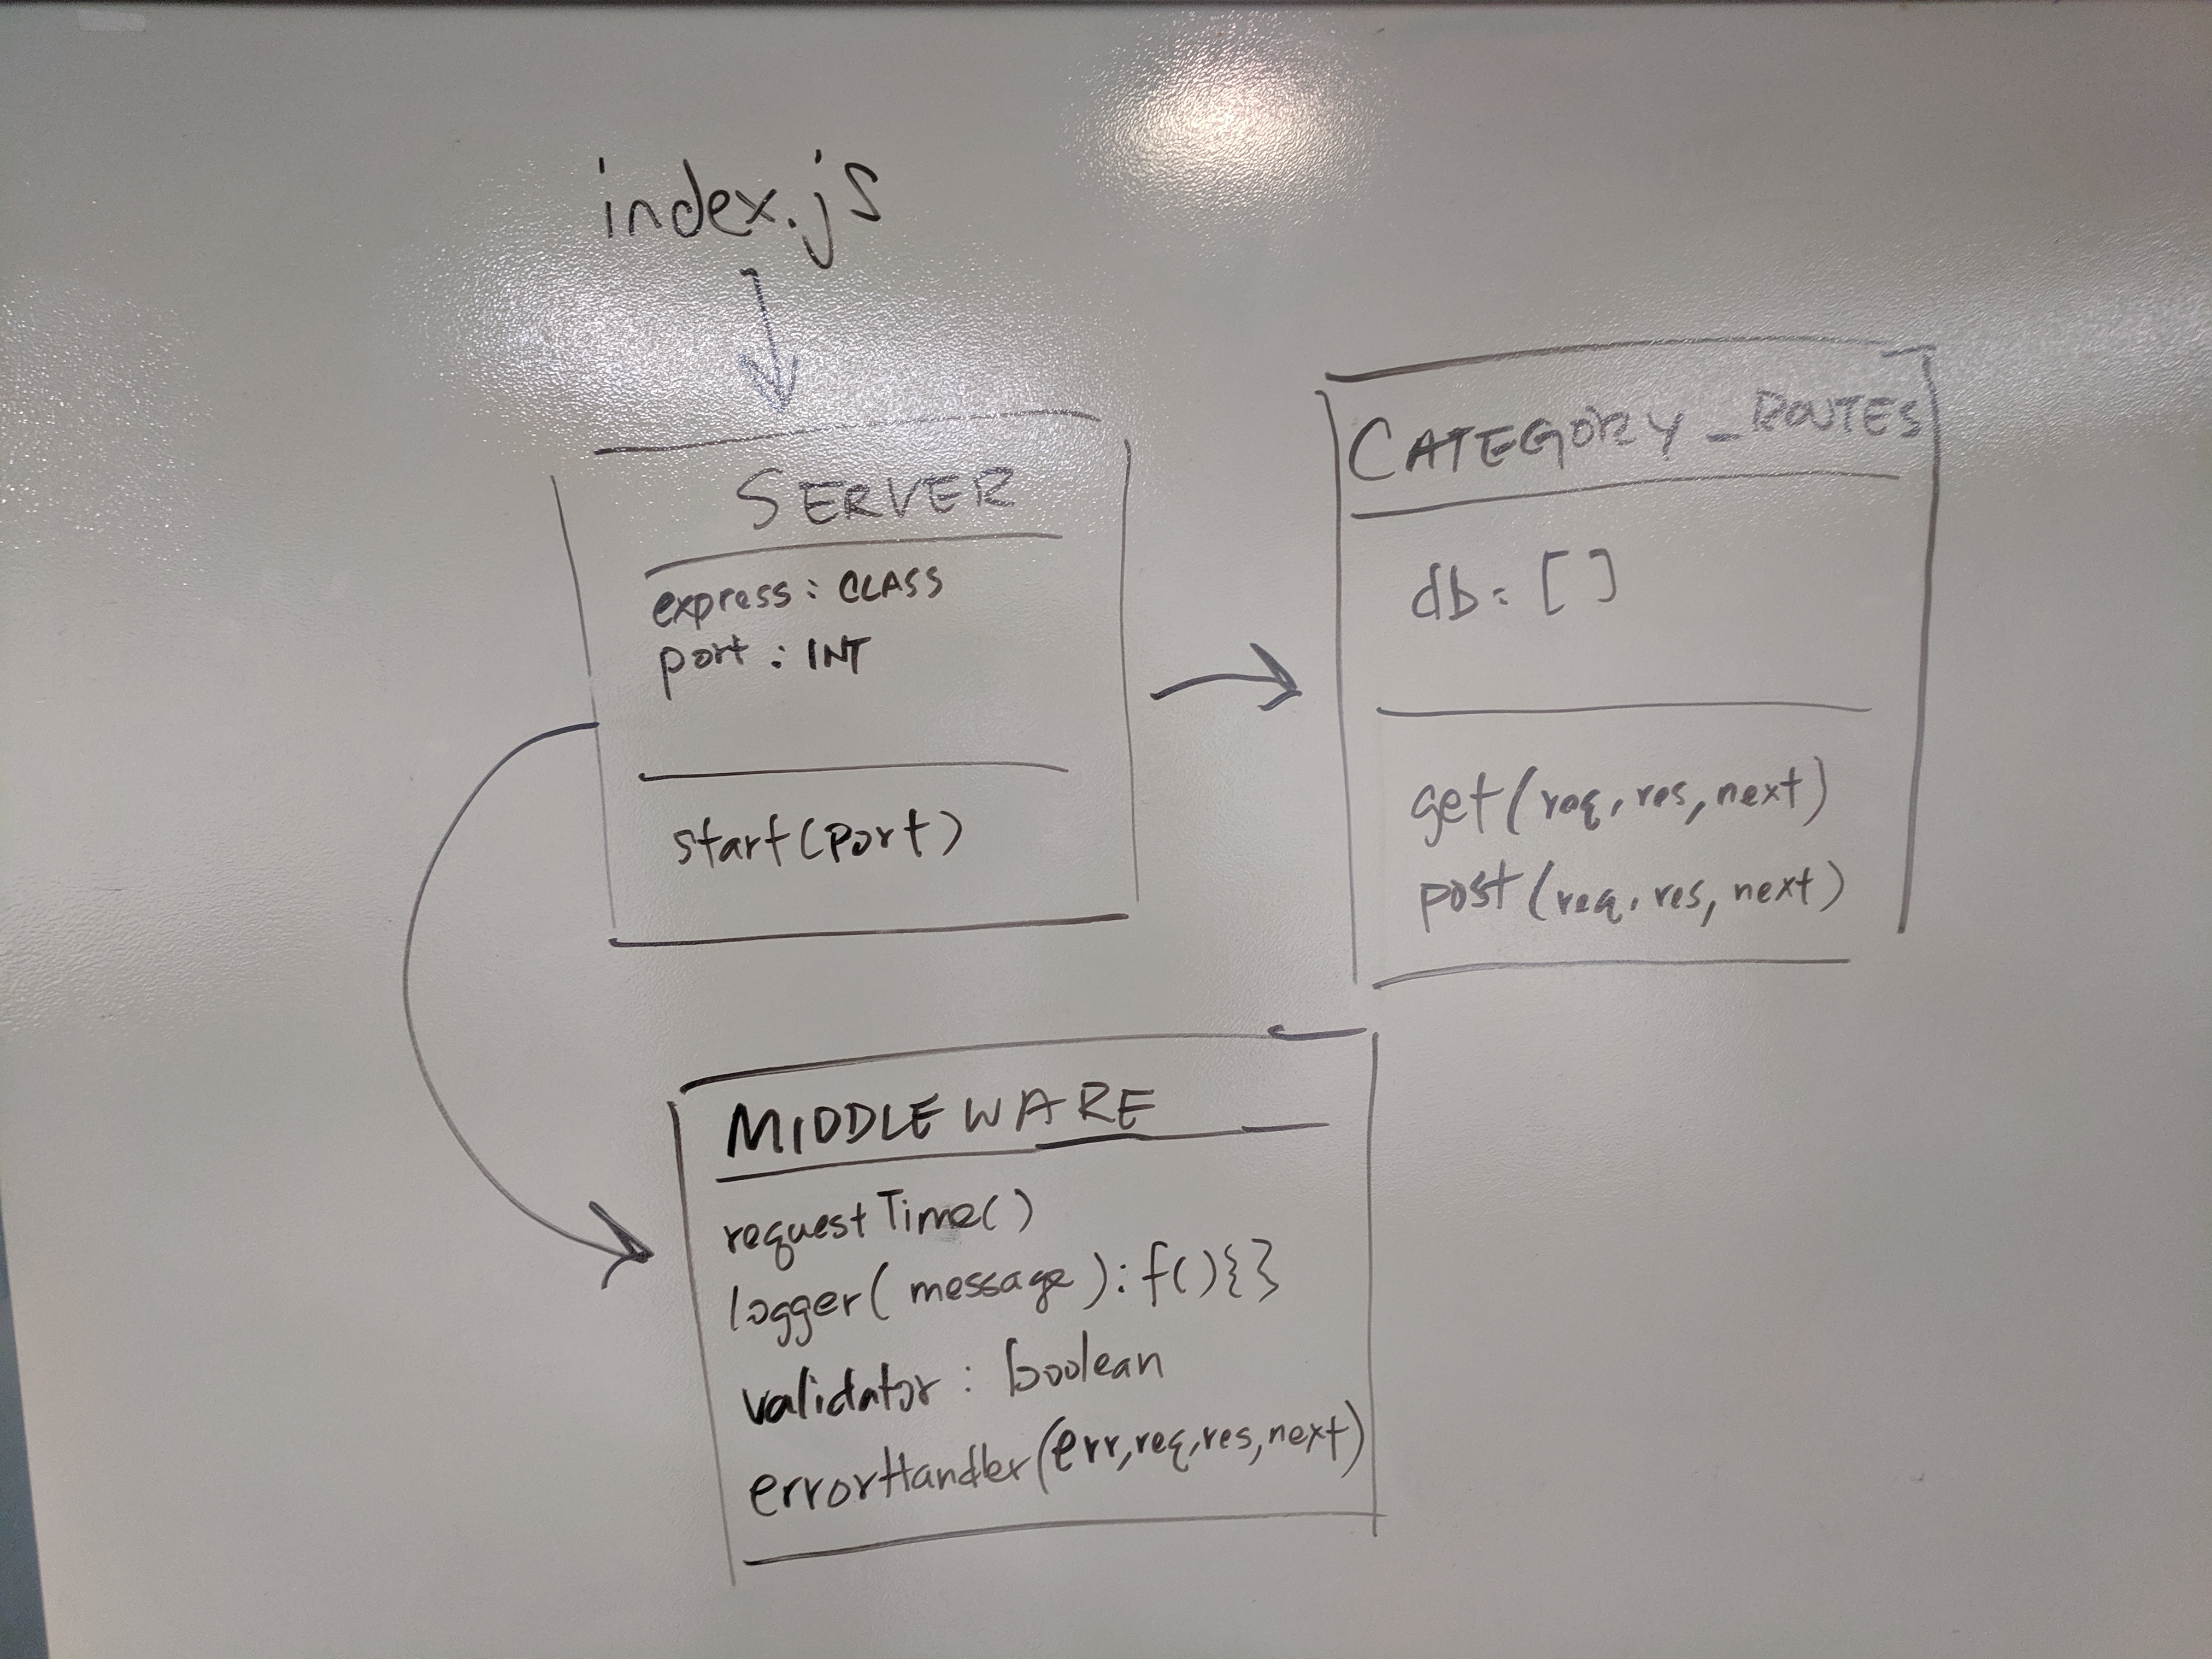 index.js
SERVER
express: CLASS
port: INT
start(port)
CATEGORY_ROUTES
db: []
get(req, res, next)
post(req, res, next)
MIDDLEWARE
requestTime()
logger(message): f(){}
validator: boolean
errorHandler(err, req, res, next)